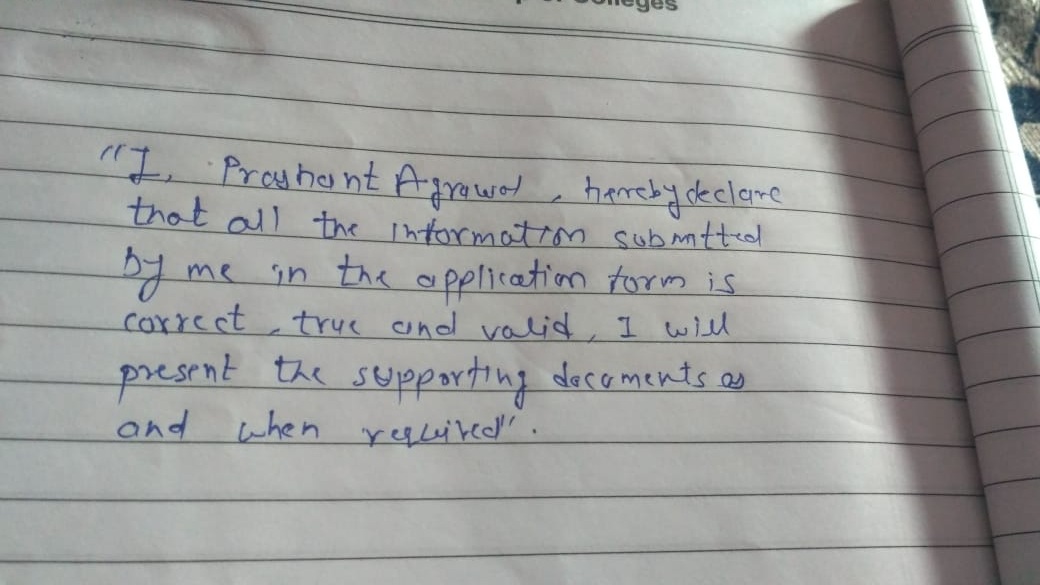 Colleges
"I, Prashant Agrawal, hereby declare
that all the information submitted
by me in the application form is
correct, true and valid, I will
present the supporting documents as
and when required".